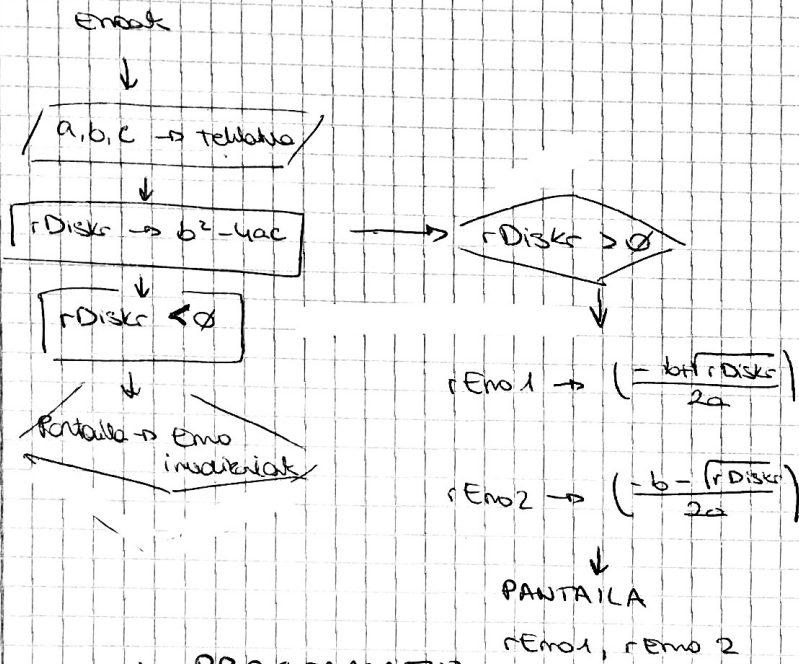 Erroak
a, b, c → teklatua
rDiskr → b² - 4ac
rDiskr < 0
Pantaila → Erro
irudikariak
rDiskr > 0
rErro1 → (-b+√rDiskr / 2a)
rErro2 → (-b-√rDiskr / 2a)
PANTAILA
rErro1, rErro2